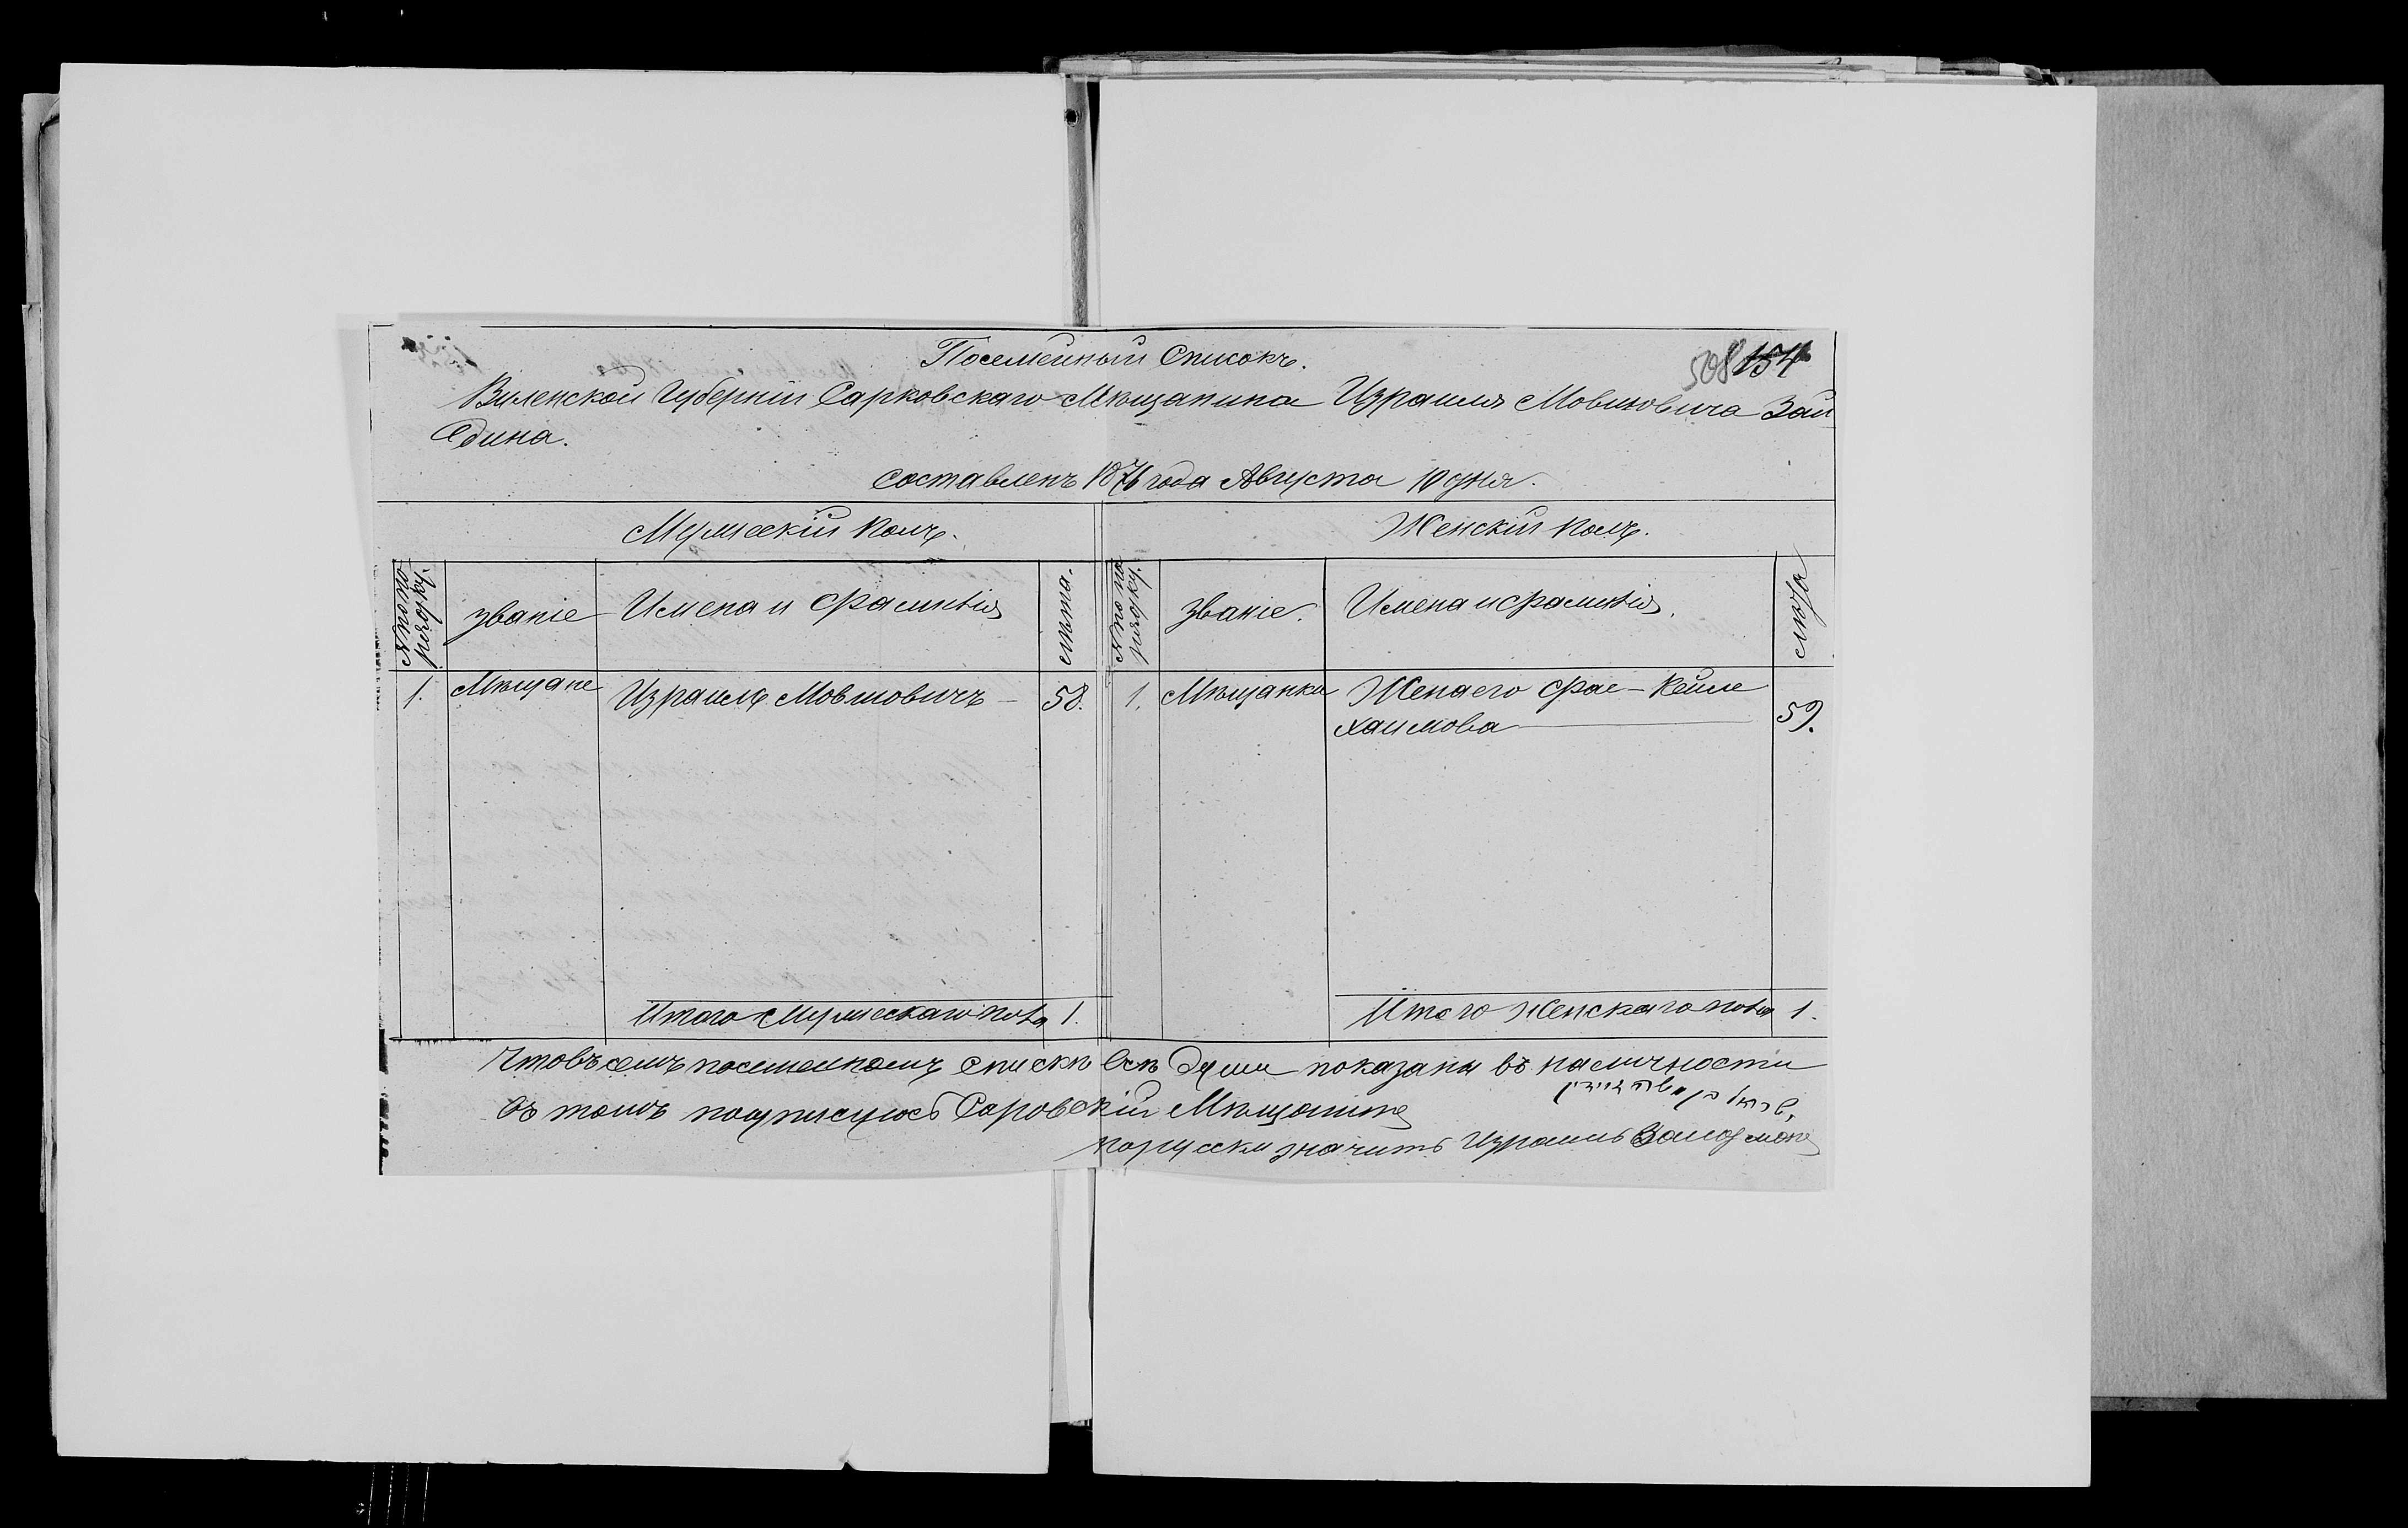 Посемейный Списокъ.
508 154
Виленской Губерніи Сарковскаго Мѣщанина Израиля Мовшовича Зай
дина.
Составленъ 1876 года Августа 10 дня.
Мужескій Полъ. Женскій Полъ.
№ по по
рядку. Званіе Имена и фамилія лѣта. № по по
рядку. Званіе. Имена и фамилія. лѣта
1. Мѣщане Израиль Мовшовичъ — 58. 1. Мѣщанки Жена его Фае-Кейле
Хаимова 59.
Итого Мужескаго пола 1. Итого Женскаго пола 1.
Что въ семъ посемейномъ спискѣ всѣ души показаны въ наличности
въ томъ подписуюсь Саровскій Мѣщанинъ
порусски значитъ Израиль